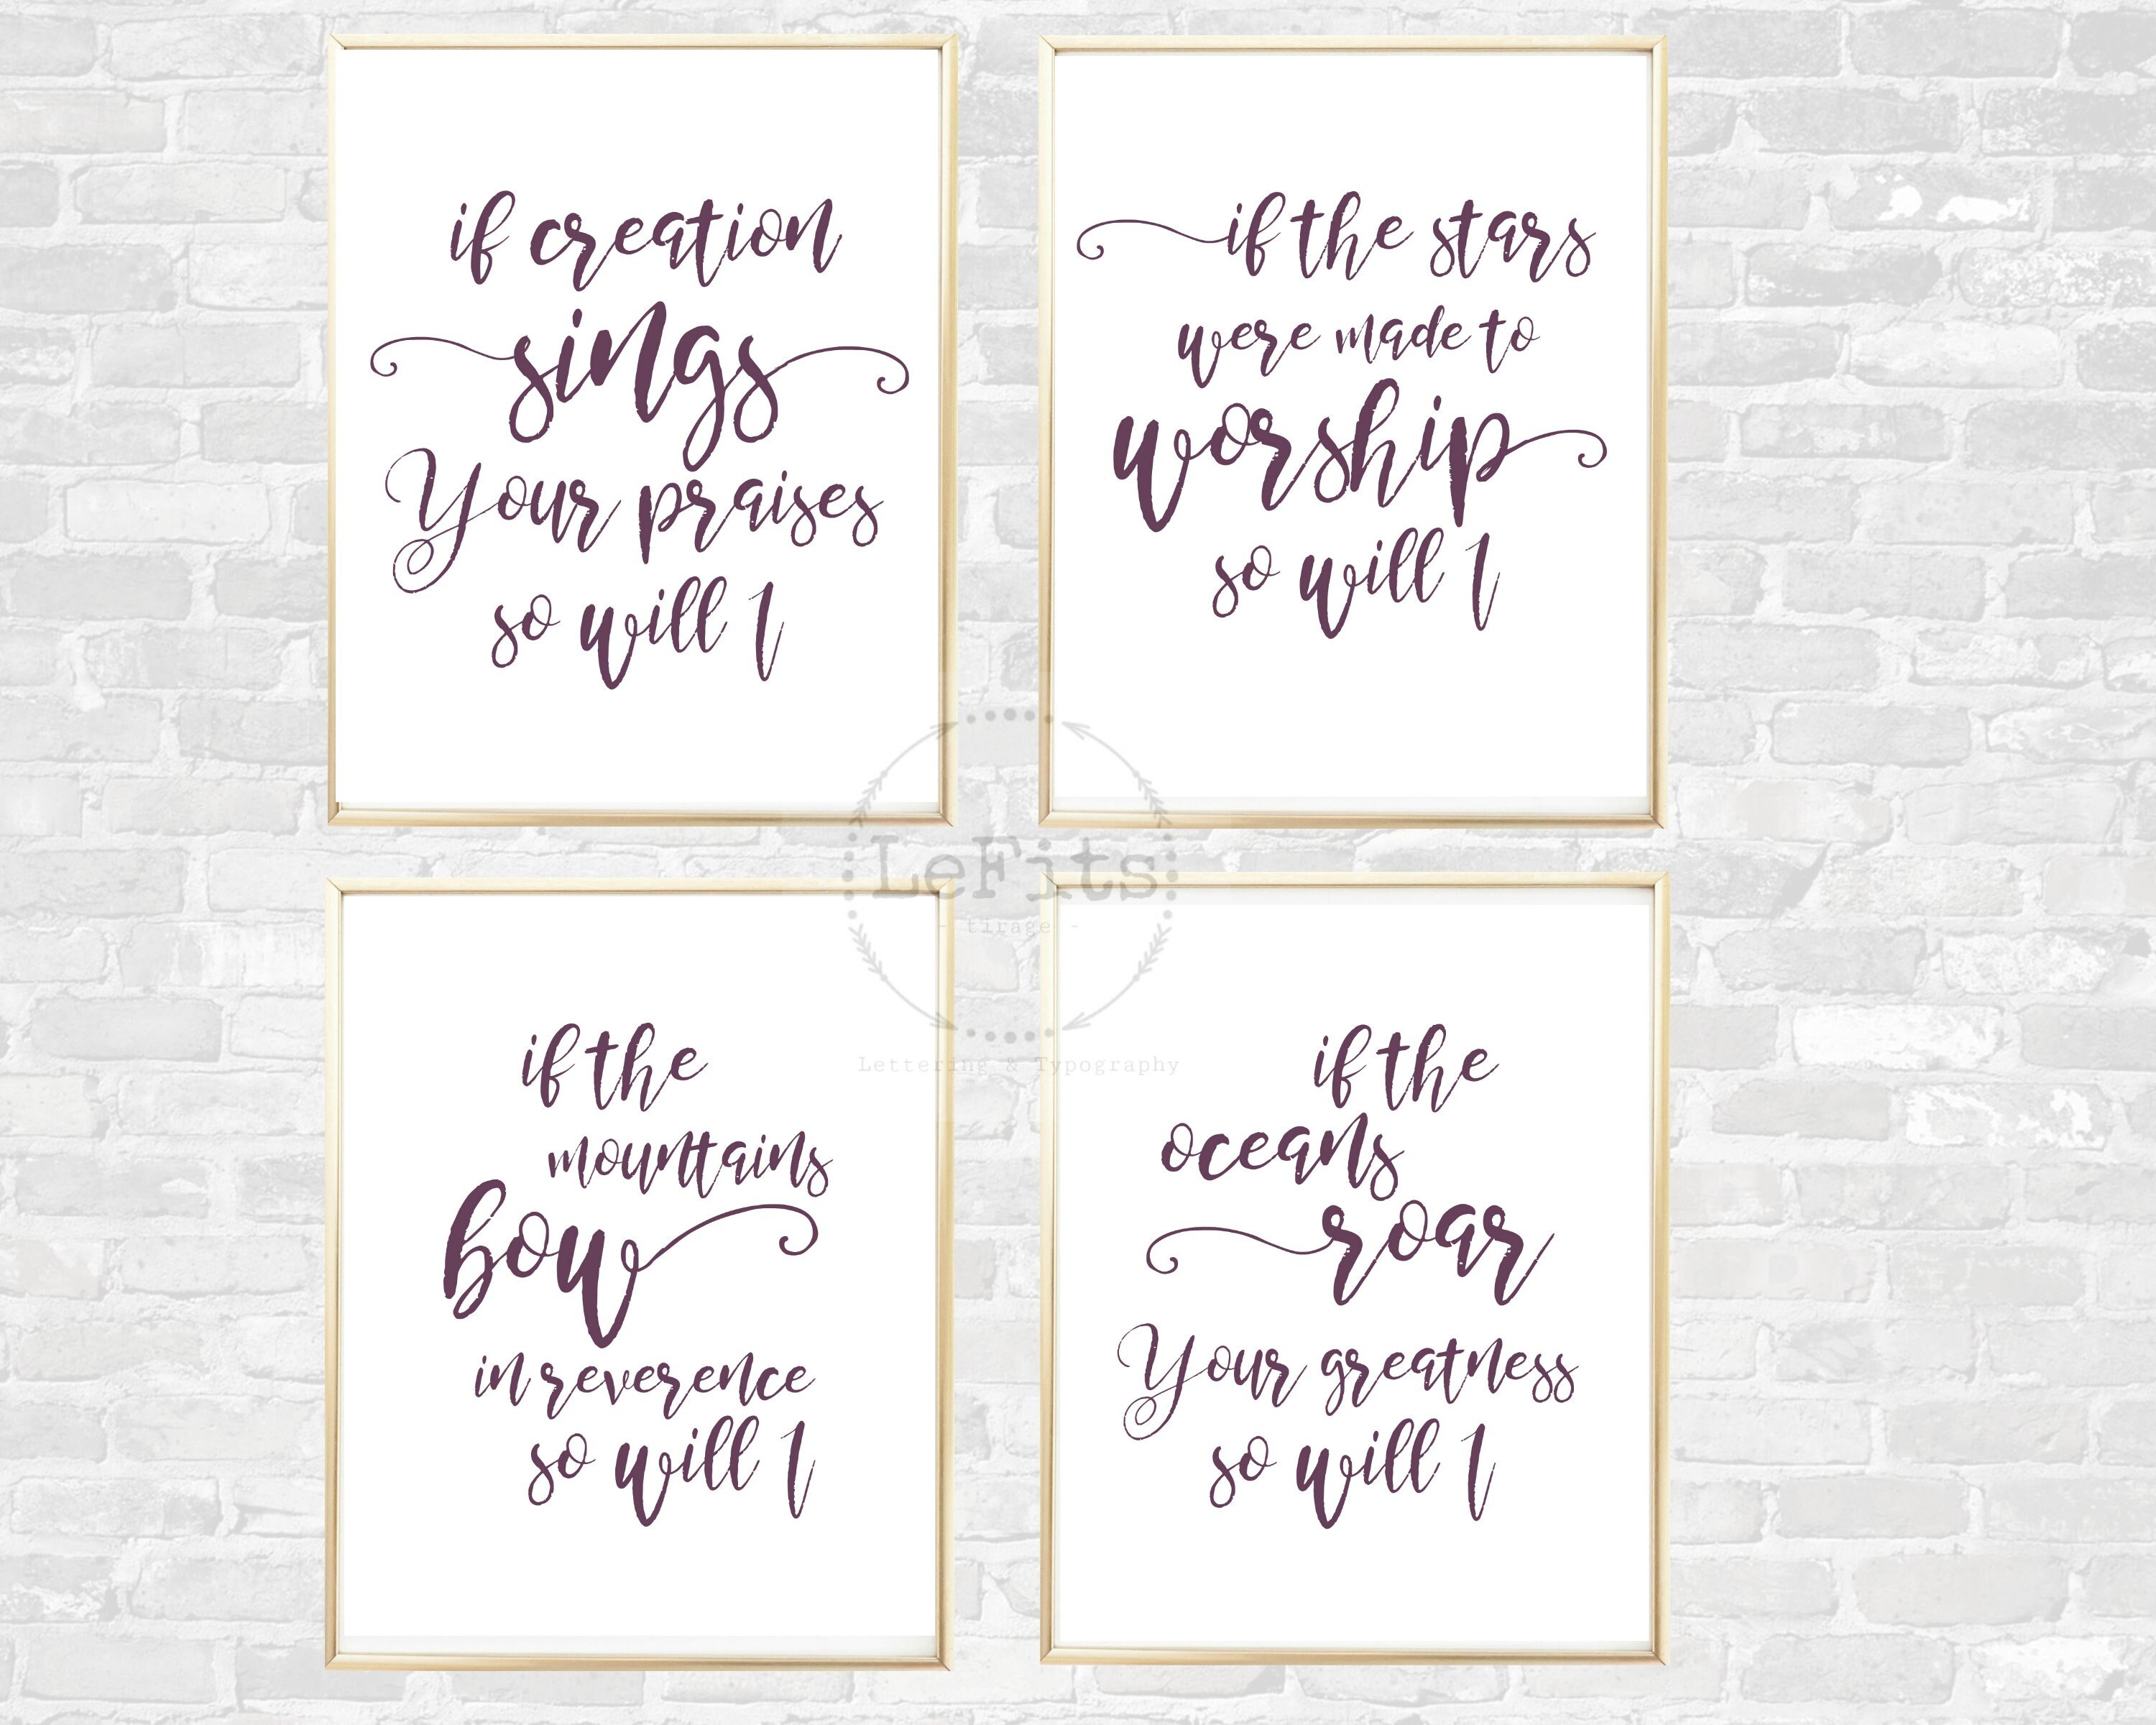 if creation
sings
Your praises
so will I
if the stars
were made to
worship
so will I
LeFits
- tirage -
Lettering & Typography
if the
mountains
bow
in reverence
so will I
if the
oceans
roar
Your greatness
so will I